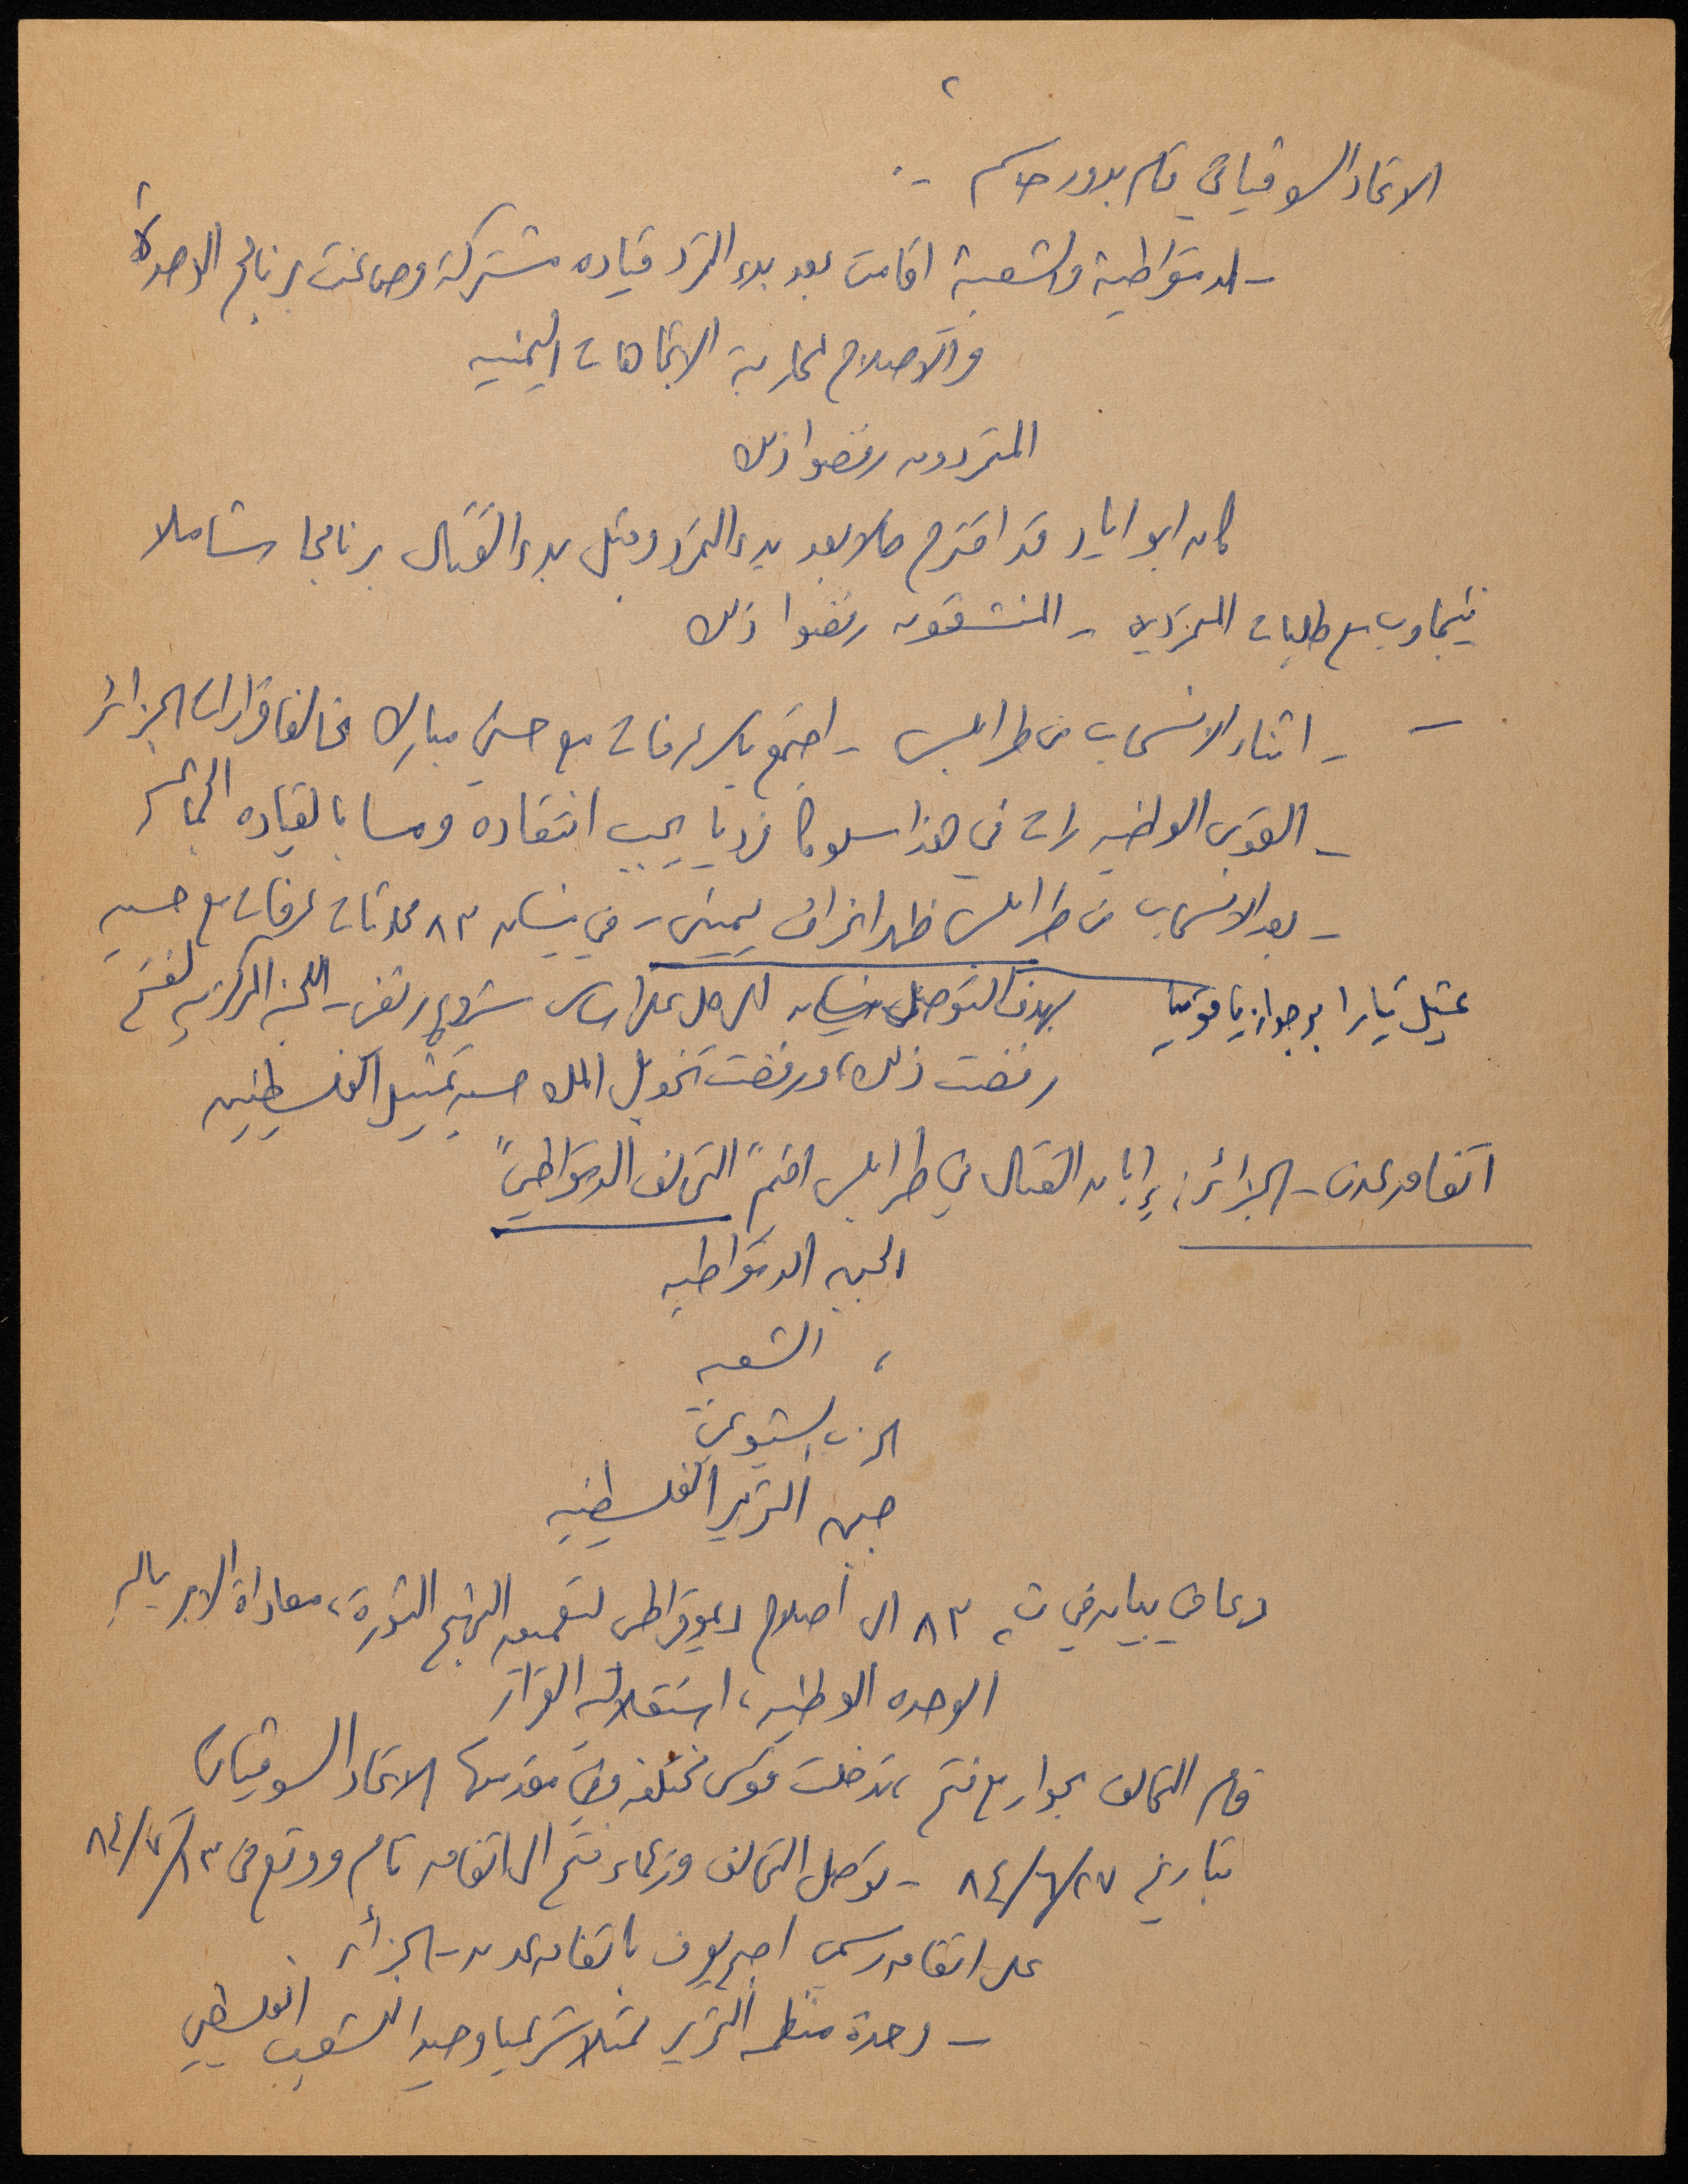 ٢
الاتحاد السوفياتي قام بدور حاسم -.
- الديمقراطية والشعبية اقامت بعد بدء التمرد قياده مشتركة وصاغت برنامج الوحدة
والاصلاح لمحاربة الاتجاهات اليمنيه
المتمردون رفضوا ذلك
كان ابو اياد قد اقترح حلا بعد بدء التمرد وقبل بدء القتال برنامجا شاملا
يتجاوب مع طلبات المتمردين - المنشقون رفضوا ذلك
- اثناء الانسحاب من طرابلس - اجتمع ياسر عرفات مع حسني مبارك مخالفا قرارات الجزائر
- القوى الوطنيه رات في هذا سلوكا فرديا يجب انتقاده ومسا بالقياده الجماعيه
- بعد الانسحاب من طرابلس ظهر انحراف يميني - في نيسان ٨٣ محادثات عرفات مع حسين
يمثل تيارا برجوازيا قوميا بهدف التوصل للحل على اساس مشروع ريغن - اللجنه المركزيه لفتح
رفضت ذلك، ورفضت تخويل الملك حسين تمثيل الفلسطينيين
اتفاق عدن - الجزائر: إبان القتال في طرابلس اقيم "التحالف الديمقراطي"
الجبهه الديمقراطيه
، الشعبيه
الحزب الشيوعي
جبهه التحرير الفلسطينيه
دعا في بيان في ت٢ ٨٣ الى اصلاح ديموقراطي لتعميق النهج الثورة، معاداة الامبرياليه
الوحده الوطنيه، استقلاليه القرار
قام التحالف بحوار مع فتح، تدخلت قوى مختلفه وفي مقدمتها الاتحاد السوفياتي
بتاريخ ٢٧/٦/٨٤ - توصل التحالف وزعماء فتح الى اتفاق تام ووقع في ١٣/٧/٨٤
على اتفاق رسمي اصبح يعرف باتفاق عدن - الجزائر.
- وحدة منظمه التحرير ممثلا شرعيا وحيدا للشعب الفلسطيني